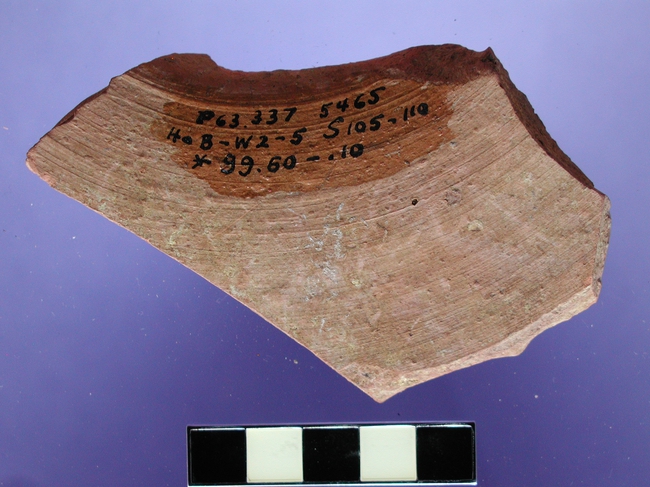 P63.337 5465
HoB-W2-5 S105-110
* 99.60-.10